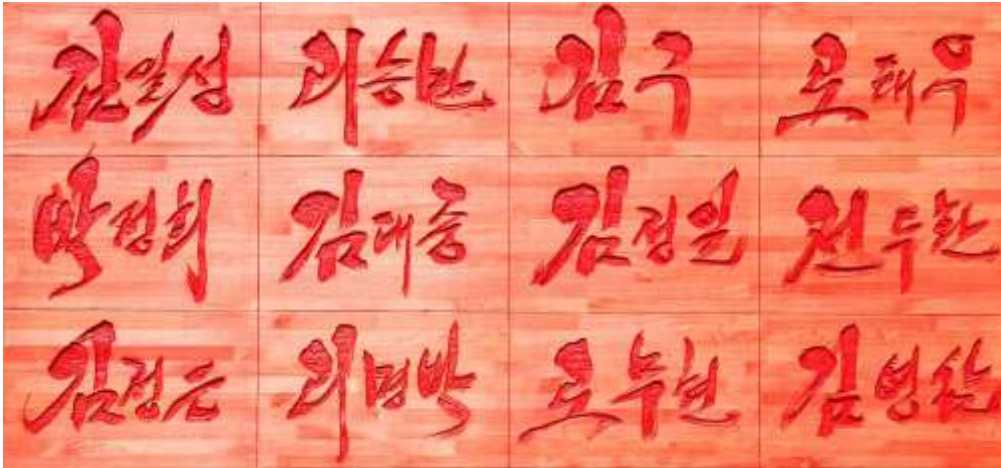 김일성 리승만 김구 로태우
박정희 김대중 김정일 전두환
김정은 리명박 로무현 김영삼